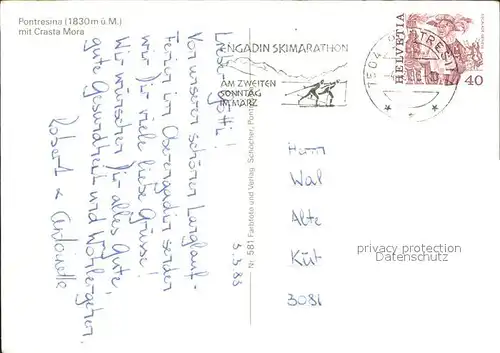 Pontresina (1830 m ü. M.)
mit Crasta Mora
Vor unserer schönen Langlauf-
Ferien im Oberengadin senden
wir Dir viele liebe Grüsse!
Wir wünschen Dir alles Gute,
gute Gesundheit und Wohlergehen.
Robert & Antoinette
3.3.83
Nr. 581 Farbfoto und Verlag
ENGADIN SKIMARATHON
AM ZWEITEN
SONNTAG
IM MÄRZ
7504
HELVETIA
40
Herrn
Wal
Alte
Küt
3081
privacy protection
Datenschutz